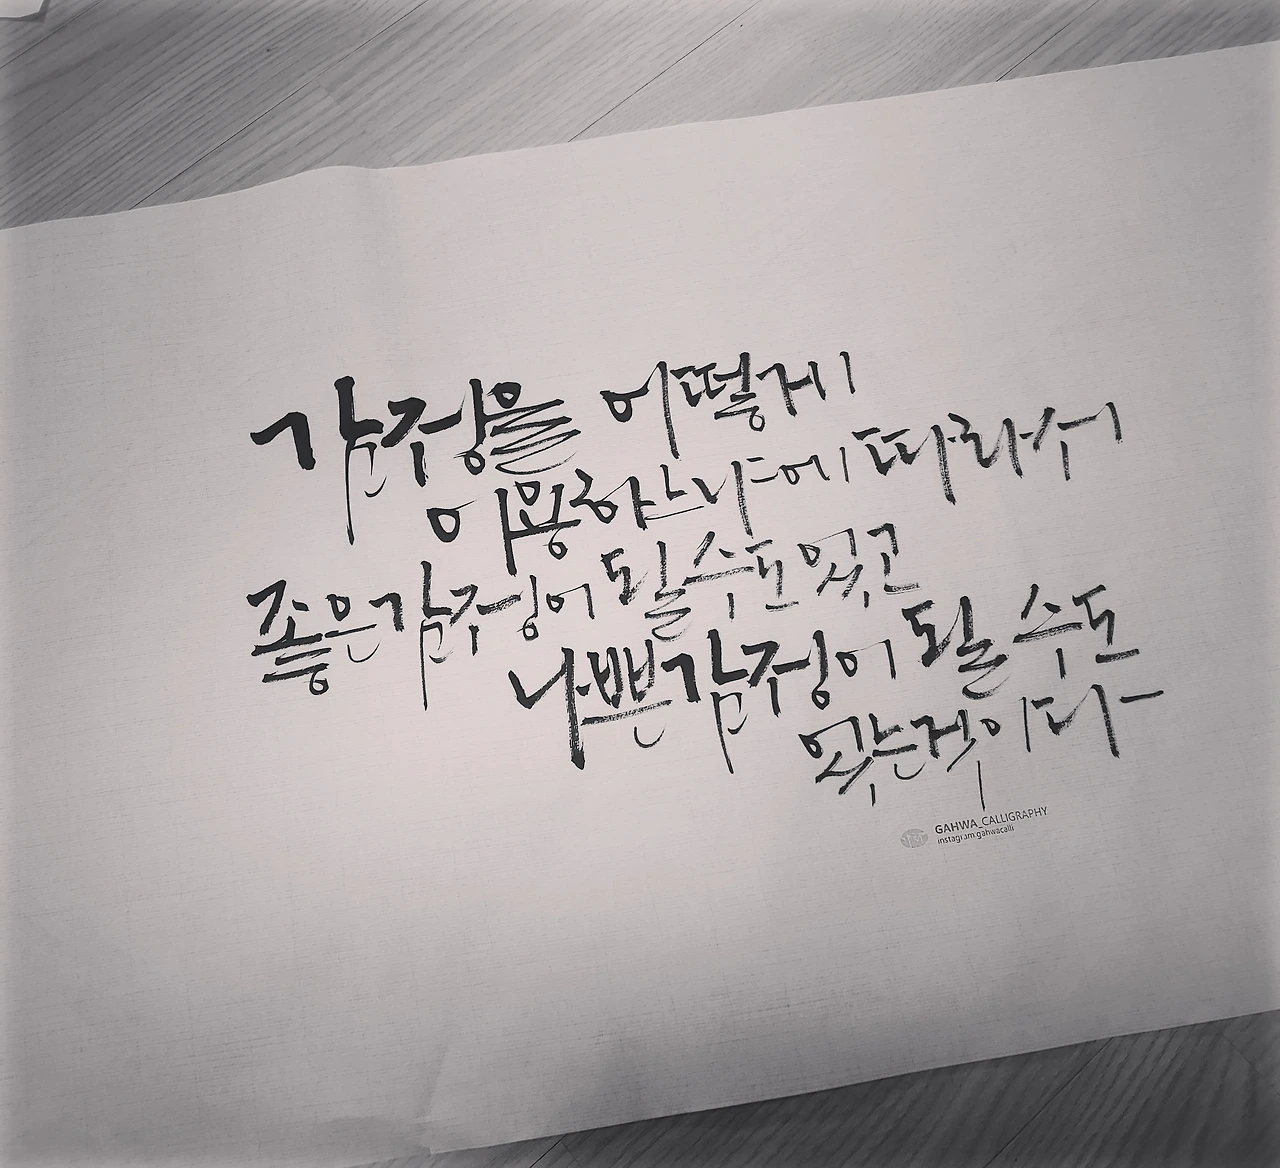 감정을 어떻게
이용하느냐에 따라서
좋은 감정이 될 수도 있고
나쁜 감정이 될 수도
있는 것이다
GAHWA_CALLIGRAPHY
instagram.gahwacalli